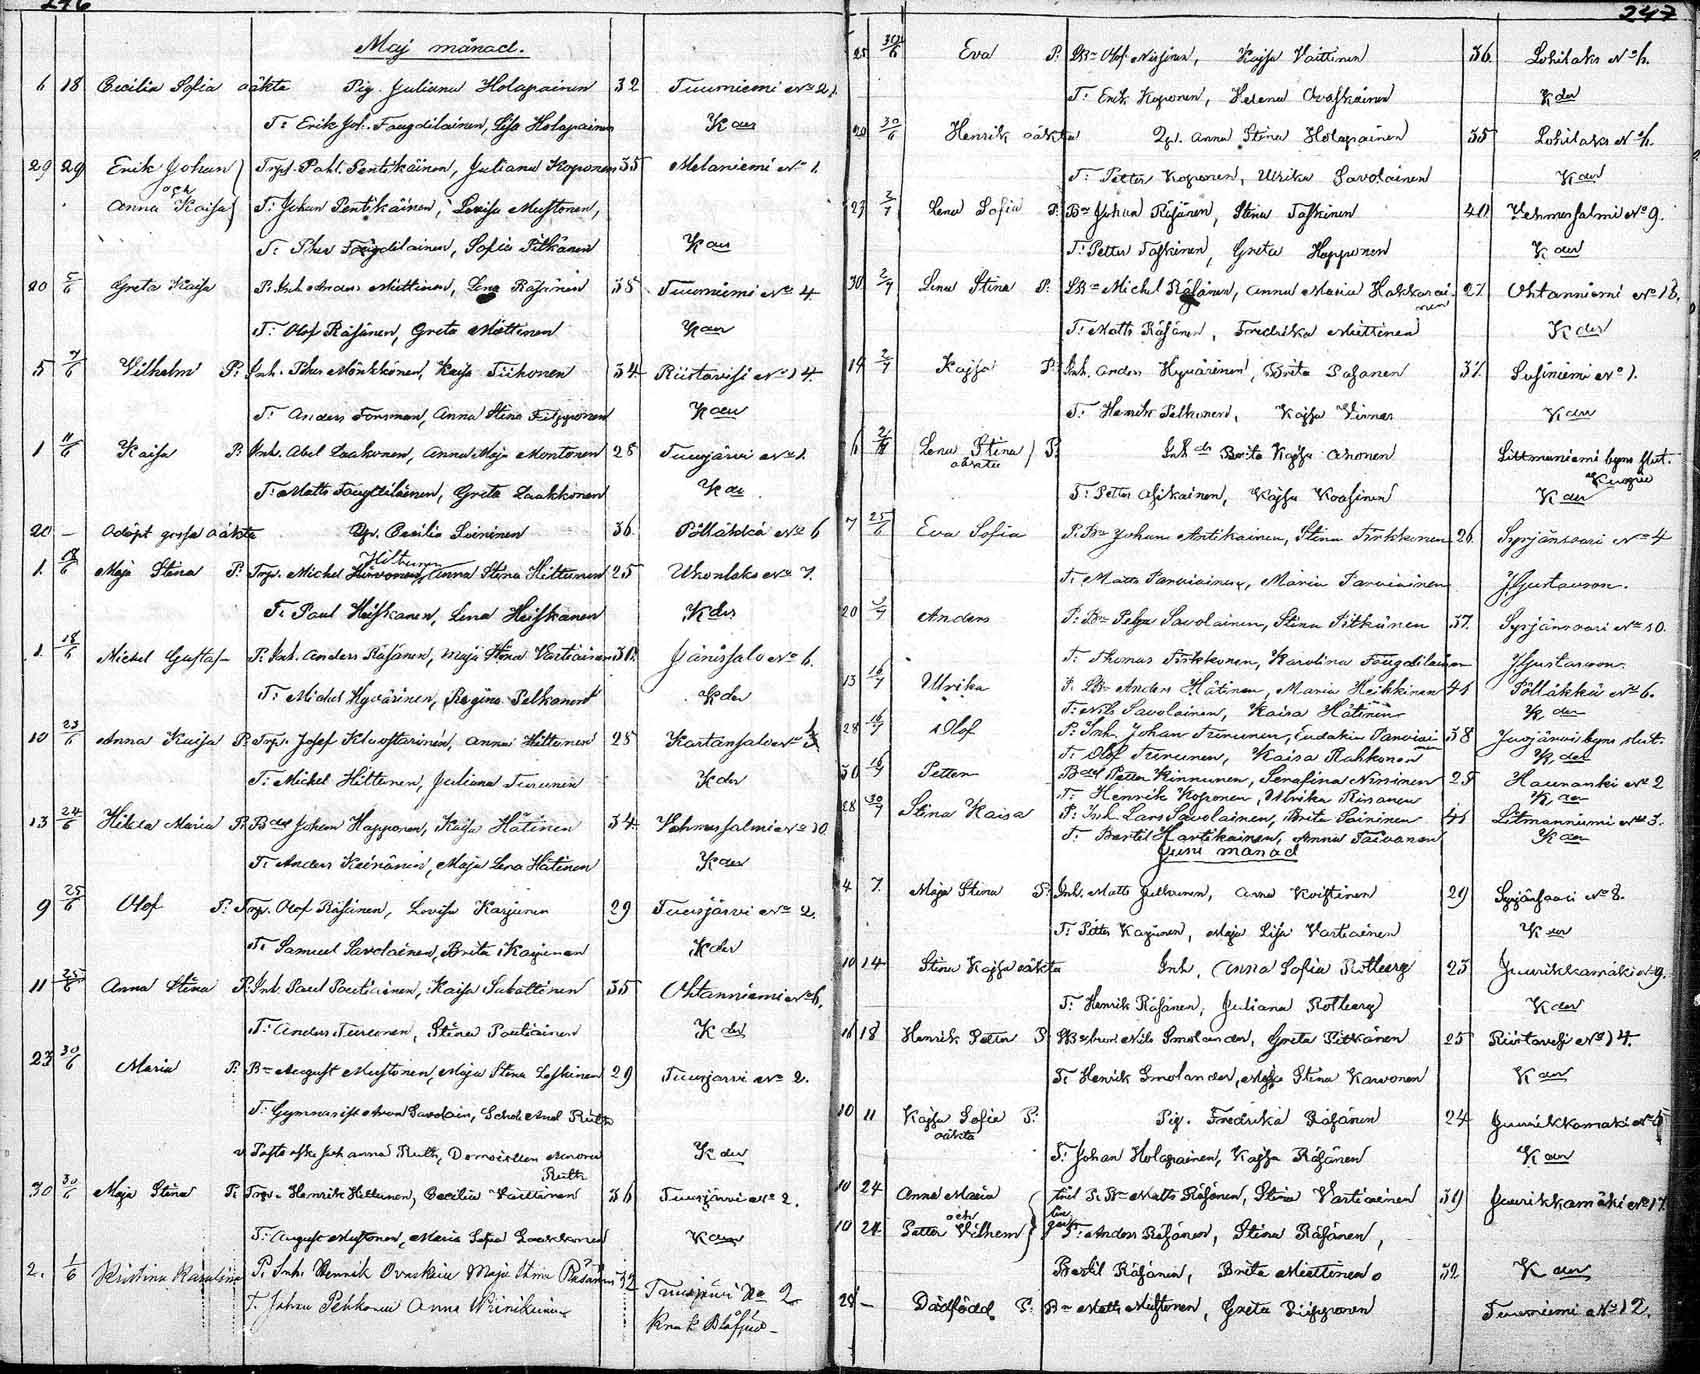 246
Maj månad.
6 18 Cecilia Sofia oäkta Pig. Juliana Holapainen 32 Tuurniemi No 21.
T: Erik Joh. Faugdilainen, Lisa Holapainen K der
29 29 Erik Johan Trp. Pahl Pentikäinen, Juliana Koponen 35 Melaniemi No 1.
och
Anna Kaisa T: Johan Pentikäinen, Lovisa Mustonen,
T: Pher Faugdilainen, Sofia Pitkänen K der
20 5/6 Greta Kaisa P. Inh. Anders Miettinen, Lena Räsänen 38 Tuurniemi No 4
T: Olof Räsänen, Greta Miettinen K der
5 7/6 Vilhelm P: Inh. Pher Mönkkönen, Kaisa Tiihonen 34 Riistavesi No 14.
T: Anders Forsman, Anna Stina Filpponen K der
1 11/6 Kaisa P. Inh. Abel Laakonen, Anna Maja Montonen 28 Tuusjärvi No 1.
T: Matts Faugdilainen, Greta Laakkonen K der
20 — Odöpt gosse oäkta Cecilia Soininen 36 Pölläkkä No 6
Hiltunen
1. 18/6 Maja Stina P. Trp. Michel Anna Stina Hiltunen 25 No 7.
T: Paul Heiskanen, Lena Heiskanen K der
1. 18/6 Michel Gustaf P. Inh. Anders Räsänen, Maja Stina Vartiainen 31. Jänissalo No 6.
T: Michel Hyvärinen, Regina Pelkonen K der
10 23/6 Anna Kaisa P. Trp. Josef Kluostarinen, Anna Hiltunen 28 Kartansalo No
T: Mickel Hiltunen, Juliana Turunen K der
13 24/6 Hilda Maria P. Bdes Johan Happonen, Kaisa Hätinen 34 Vehmersalmi No 10
T: Anders Keinänen, Maja Lena Hätinen K der
9 25/6 Olof P: Trp. Olof Räsänen, Lovisa Karjunen 29 Tuusjärvi No 2.
T: Samuel Savolainen, Brita K der
11 25/6 Anna Stina P. Inh. Paul Pautiainen, Kaisa 35 Ohtanniemi No 6.
T: Anders Turunen, Stina Pautiainen K der
23 30/6 Maria P. Bn August Mustonen, Maja Stina Leskinen 29 Tuusjarvi No 2.
T: Gymnasist Aron Savolain, Ruth
Johanna Ruth, Demoisellen K der
Ruth
30 30/6 Maja Stina P. Trp. Henrik Hiltunen, Cecilia Väittinen 36 Tuusjärvi No 2.
T: August Mustonen, Maria Sofia Laakkonen K der
2. 1/6 Kristina Karolina P. Inh. Henrik Ovaskain Maja Stina Räsänen 32 Tuusjärvi No 2
T. Johan Pehkonen Anna K der
247
25 30/6 Eva P. Bn Olof Nissinen, Kajsa Väittinen 36. Lohilaks No 6.
T: Erik Koponen, Helena Ovaskainen K der
20 30/6 Henrik oäkta Anna Stina Holapainen 35 Lohilaks No 6.
T: Petter Koponen, Ulrika Savolainen K der
23 2/7 Lena Sofia P. Bn Johan Räsänen, Stina Taskinen 40 Vehmersalmi No 9.
T: Petter Taskinen, Greta Happonen K der
30 2/7 Lena Stina P. Bn Michel Räsänen, Anna Maria Hakkarai 27. Ohtanniemi No 13.
nen
T: Matts Räsänen, Fredrika Miettinen K der
19 2/7 Kajsa P: Inh. Anders Hyvärinen, Brita Pasanen 37. Susiniemi No 1.
T: Henrik Pelkonen, Kajsa K der
6 Lena Stina P. Inh. Brita Kajsa Ahonen Littmaniemi byns slut.
oäkta
Kuopio
T: Petter Asikainen, Kajsa Koasinen K der
7 25/6 Eva Sofia P. Bn Johan Antikainen, Stina Tirkkonen 26. Syrjänsaari No 4
T: Matts Parviainen, Maria Parviainen J Gustavson.
20 Anders P: Bn Pehr Savolainen, Stina Pitkänen 37. Syrjänsaari No 10.
T: Thomas Tirkkonen, Karolina Faugdilainen J Gustavson.
13 16/7 Ulrika P: Bn Anders Hätinen, Maria Heikkinen 41 Pölläkkä No 6.
T: Nils Savolainen, Kaisa Hätinen K der
28 16/7 Olof P: Inh. Johan Turunen, Eudakia Parviai 38 Juojärvi byns slut.
T: Olof Turunen, Kaisa Rahkonen K der
30 16/7 Petter Bdes Petter Kinnunen, Serafina Nissinen 25 Hauranki No 2
T: Henrik Koponen, Ulrika Risanen K der
28 30/7 Stina Kaisa P: Inh. Lars Savolainen, Brita Soininen 41 Litmanniemi No 3.
T: Bertil Hartikainen, Anna Taivanen K der
Juni månad
4 7. Maja Stina P: Inh. Matts Julkunen, Anna Koistinen 29 Syrjänsaari No 8.
T: Petter Karjunen, Maja Lisa Vartiainen K der
10 14 Stina Kajsa oäkta Inh. Anna Sofia Rotberg 23 Juurikkamäki No 9.
T: Henrik Räsänen, Juliana Rotberg K der
16 18 Henrik Petter P. Nils Smolander, Greta Pitkänen 25 Riistavesi No 14.
T: Henrik Smolander, Maja Stina Karvonen K der
10 11 Kajsa Sofia P: Pig. Fredrika Räsänen 24 Juurikkamäki No 5
oäkta
T: Johan Holapainen, Kajsa Räsänen K der
10 24 Anna Maria P. Bn Matts Räsänen, Stina Vartiainen 39 Juurikkamäki No 17
och
10 24 Petter Vilhem T: Anders Räsänen, Stina Räsänen,
Bertil Räsänen, Brita Miettinen 32 K der
28 — Dödfödd P: Bn Matts Mustonen, Greta Tuurniemi No 12.